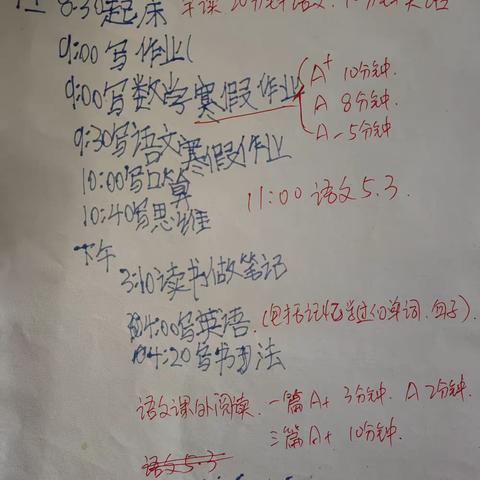 8:30起床 早读 20分钟语文. 10分钟英语
9:00写作业(
9:00写数学寒假作业 A+ 10分钟.
A 8分钟.
A- 5分钟
9:30写语文寒假作业
10:00写口算
11:00 语文5.3.
10:40写思维
下午
3:10读书做笔记
4:00写英语. (包括记忆学过的单词.句子).
4:20写书法
语文课外阅读. 一篇A+ 3分钟. A 2分钟.
三篇A+ 10分钟.
语文5.3